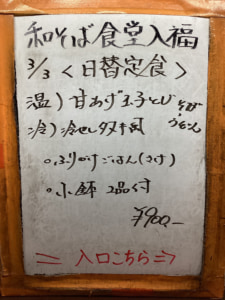 和そば食堂入福
3/3 <日替定食>
温) 甘あげ玉子とじ そば
うどん
冷) 冷せいタヌキ風
○ふりかけごはん(さけ)
○小鉢 2品付
¥900-
入口こちら⇒